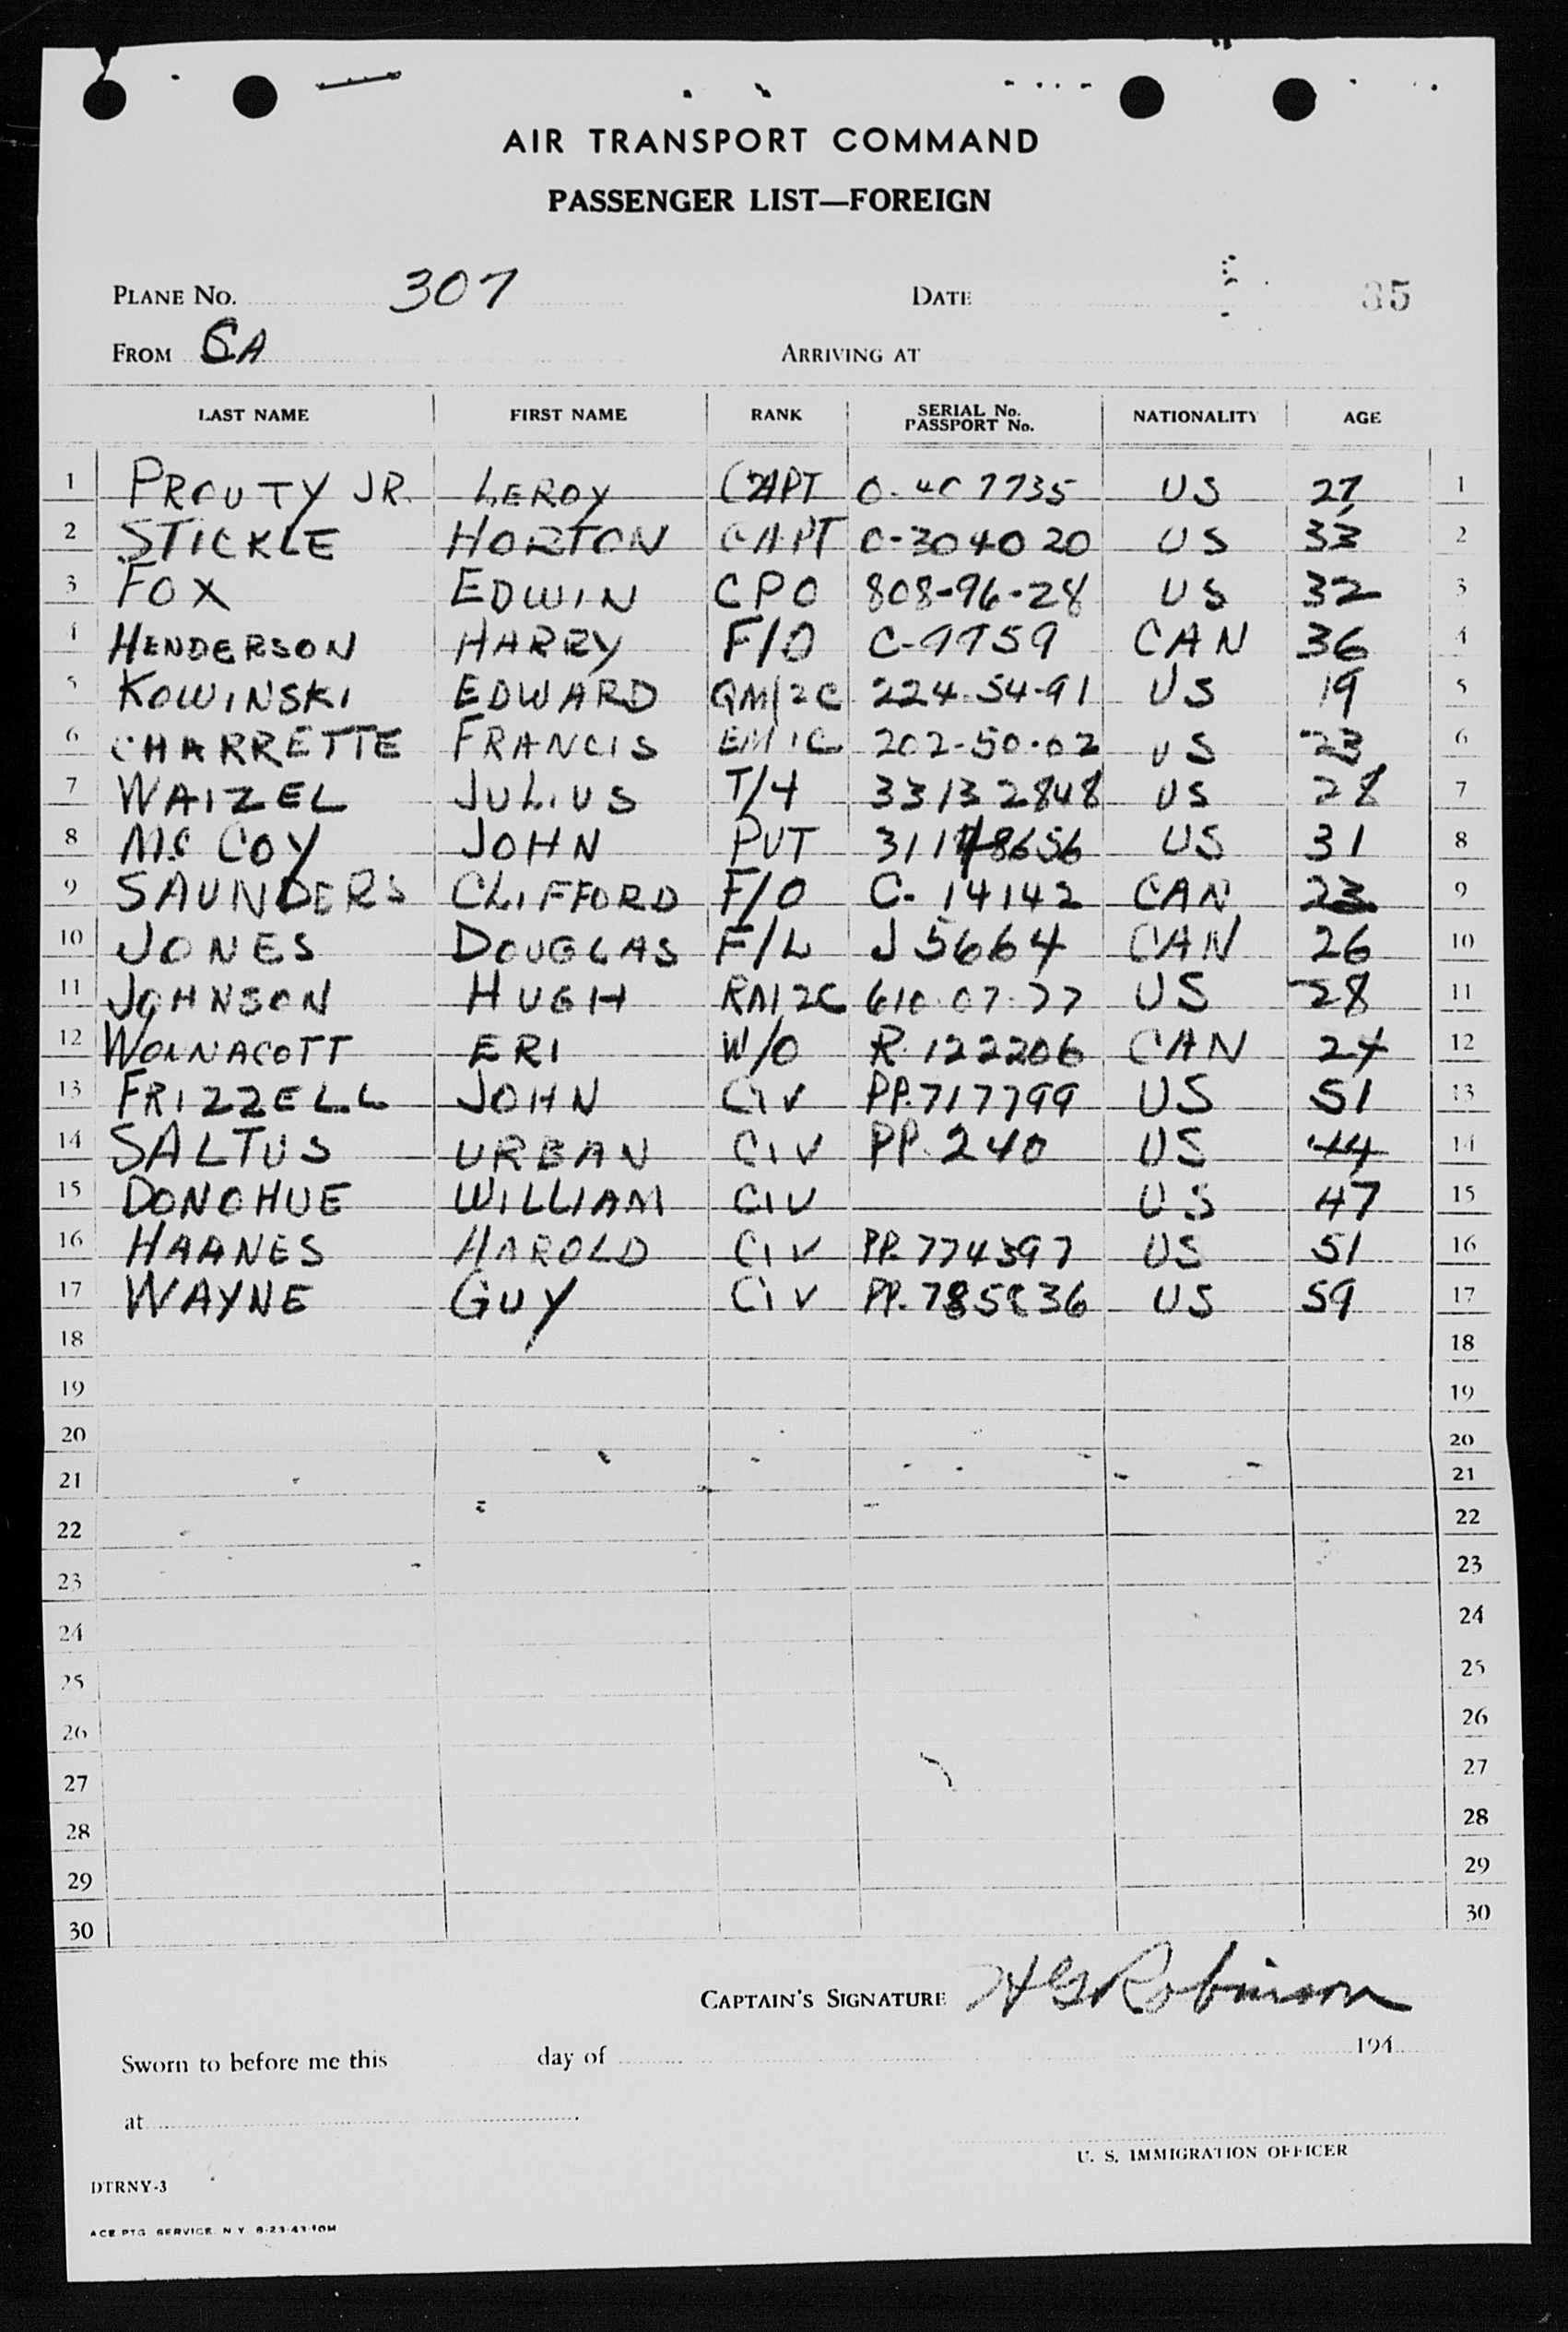 AIR TRANSPORT COMMAND
PASSENGER LIST—FOREIGN
PLANE No. 307 DATE 35
FROM ARRIVING AT
LAST NAME FIRST NAME RANK SERIAL No. PASSPORT No. NATIONALITY AGE
1 PROUTY JR. LEROY CAPT O-407735 US 27 1
2 STICKLE HORTON CAPT O-304020 US 33 2
3 FOX EDWIN CPO 808-96-28 US 32 3
4 HENDERSON HARRY F/O C-7759 CAN 36 4
5 KOWINSKI EDWARD QM/2C 224-54-91 US 19 5
6 CHARRETTE FRANCIS EM1C 202-50-02 US 23 6
7 WAIZEL JULIUS T/4 33132848 US 28 7
8 MC COY JOHN PVT US 31 8
9 SAUNDERS CLIFFORD F/O C-14142 CAN 23 9
10 JONES DOUGLAS F/L J5664 CAN 26 10
11 JOHNSON HUGH RM2C 610-07-77 US 28 11
12 WONNACOTT ERI W/O R-122206 CAN 24 12
13 FRIZZELL JOHN CIV PP.717799 US 51 13
14 SALTUS URBAN CIV PP.240 US 44 14
15 DONOHUE WILLIAM CIV US 47 15
16 HAANES HAROLD CIV PP.774397 US 51 16
17 WAYNE GUY CIV US 59 17
18 18
19 19
20 20
21 21
22 22
23 23
24 24
25 25
26 26
27 27
28 28
29 29
30 30
CAPTAIN'S SIGNATURE HG Robinson
Sworn to before me this day of 194
at
U. S. IMMIGRATION OFFICER
DTRNY-3
ACE PTG SERVICE N Y 8-23-43-10M